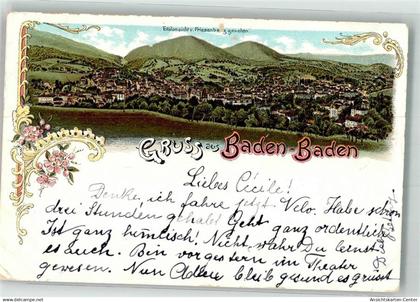 Totalansicht v. Friesenberg gesehen
Gruss aus Baden-Baden
Liebes Cécile!
Denke, ich fahre jetzt Velo. Habe schon
drei Stunden gehabt Geht ganz ordentlich
Ist ganz himmlisch! Nicht wahr Du lernst
es auch. Bin vorgestern im Theater
gewesen. Nun Adieu bleib gesund es grüsst
Ansichtskarten-Center